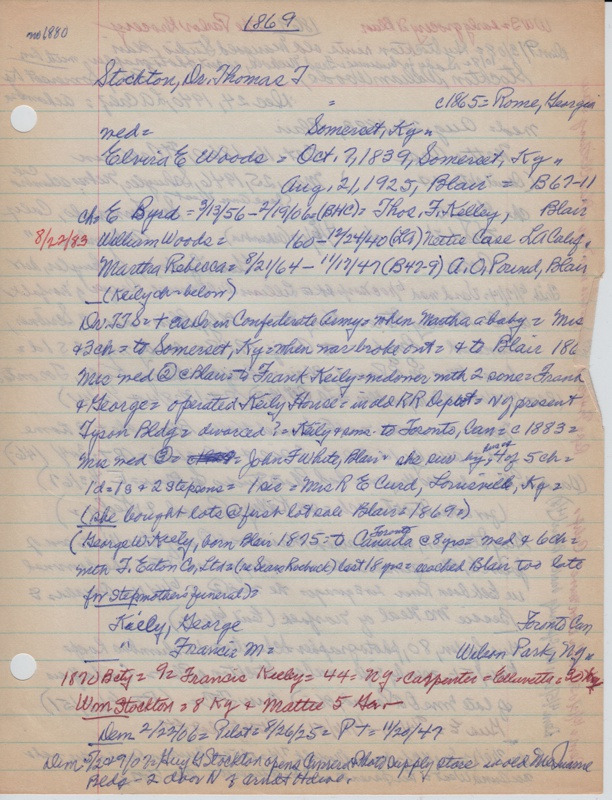 no 1880
1869
Stockton, Dr. Thomas T
" c1865= Rome, Georgia
med= Somerset, Ky "
Elvira E Woods = Oct. 7, 1839, Somerset, Ky "
Aug. 21, 1925, Blair = B67-11
ch= E Byrd = 9/13/56 - 2/19/06= (BHC)= Thos. F. Kelley, Blair
8/22/83 William Woods = 160 - 12/24/40 (LA) Nettie Case LA Calif.
Martha Rebecca = 8/21/64 - 11/17/47 (B47-9) A.O. Pound, Blair
(Keily ch= below)
Dr. TTS = + as Dr in Confederate Army= when Martha a baby = Mrs
& 3 ch = to Somerset, Ky= when war broke out = & to Blair 186
Mrs med @ c Blair= to Frank Keily= widower with 2 sons= Frank
& George = operated Keily House = in old RR Depot = N of present
Tyson Bldg = divorced? = Keily & sons to Toronto, Can = c 1883 =
Mrs med @ = John F White, Blair + she surv by 4 of 5 ch =
1d = 1s & 2 stepsons = 1 sic = Mrs R E Curd, Louisville, Ky =
(she bought lots @ first lot sale Blair = 1869 =)
(George W Keily, born Blair 1875= to Toronto Canada c 8 yrs= med & 6 ch=
with T. Eaton Co Ltd = (as Sears Roebuck) last 18 yrs= reached Blair too late
for stepmother's funeral)=
Keily, George Toronto Can
" Francis M = Wilson Park, NY "
1870 Bcty = 92 Francis Keily= 44= NY - Carpenter = = 30 Ky
Wm Stockton = 8 Ky & Mattie 5 Geo
Dem 2/22/06 = Pilot= 8/26/25 = PT= 11/20/47
Dem= 9/07= Guy H Stockton opens Camera & Photo Supply store in old
Bldg = 2 door N of Arndt Hdwe.